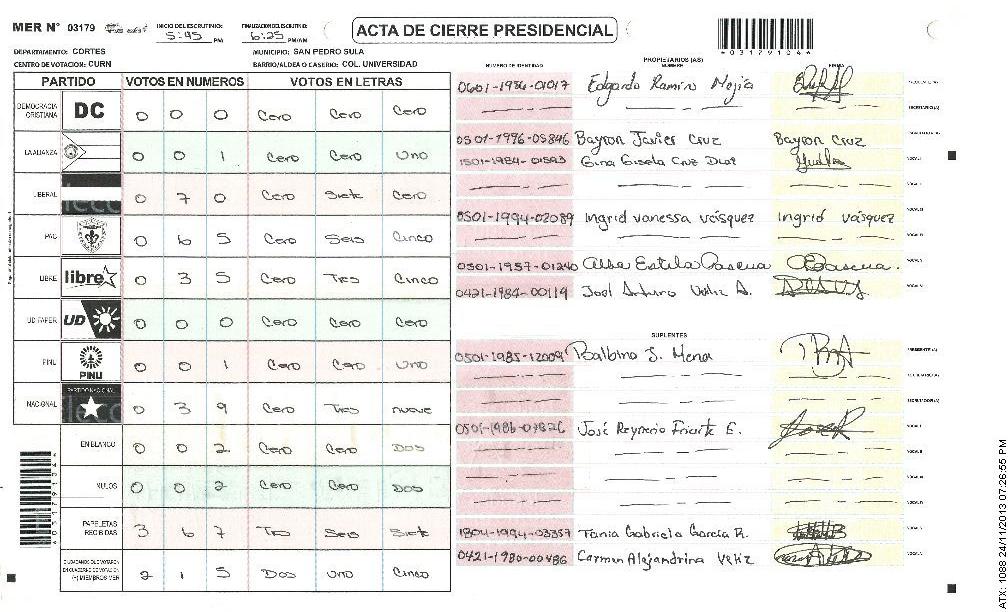 MER N° 03179
INICIO DEL ESCRUTINIO: 5:45 PM
FINALIZACION DEL ESCRUTINIO: 6:25 PM/AM
ACTA DE CIERRE PRESIDENCIAL
*03179104*
DEPARTAMENTO: CORTES
MUNICIPIO: SAN PEDRO SULA
CENTRO DE VOTACION: CURN
BARRIO/ALDEA O CASERIO: COL. UNIVERSIDAD
PARTIDO VOTOS EN NUMEROS VOTOS EN LETRAS
DEMOCRACIA CRISTIANA DC 0 0 0 Cero Cero Cero
LA ALIANZA 0 0 1 Cero Cero Uno
LIBERAL 0 7 0 Cero Siete Cero
PAC 0 6 5 Cero Seis Cinco
LIBRE libre 0 3 5 Cero Tres Cinco
UD FAPER UD 0 0 0 Cero Cero Cero
PINU PINU 0 0 1 Cero Cero Uno
NACIONAL PARTIDO NACIONAL 0 3 9 Cero Tres nueve
EN BLANCO 0 0 2 Cero Cero Dos
NULOS 0 0 2 Cero Cero Dos
PAPELETAS RECIBIDAS 3 6 7 Tres Seis Siete
CIUDADANOS QUE VOTARON EN CUADERNO DE VOTACION (+) MIEMBROS MER 2 1 5 Dos Uno Cinco
PROPIETARIOS (AS)
NUMERO DE IDENTIDAD NOMBRE FIRMA
0601-1986-01017 Edgardo Ramiro Mejia
0501-1996-05846 Bayron Javier Cruz Bayron Cruz
1501-1984-01593 Gina Gisela Cruz Diaz
0501-1994-02089 Ingrid vanessa vásquez Ingrid vásquez
0501-1957-01240 Alba Estela Pascua
0421-1984-00119 Joel Arturo Veliz A.
SUPLENTES
0501-1985-12009 Balbino S. Mena
0501-1986-07826 José Reynerio Iriarte E.
1804-1994-03357 Tania Gabriela García R.
0421-1980-00486 Carmen Alejandrina Veliz
ATX: 1088 24/11/2013 07:26:55 PM